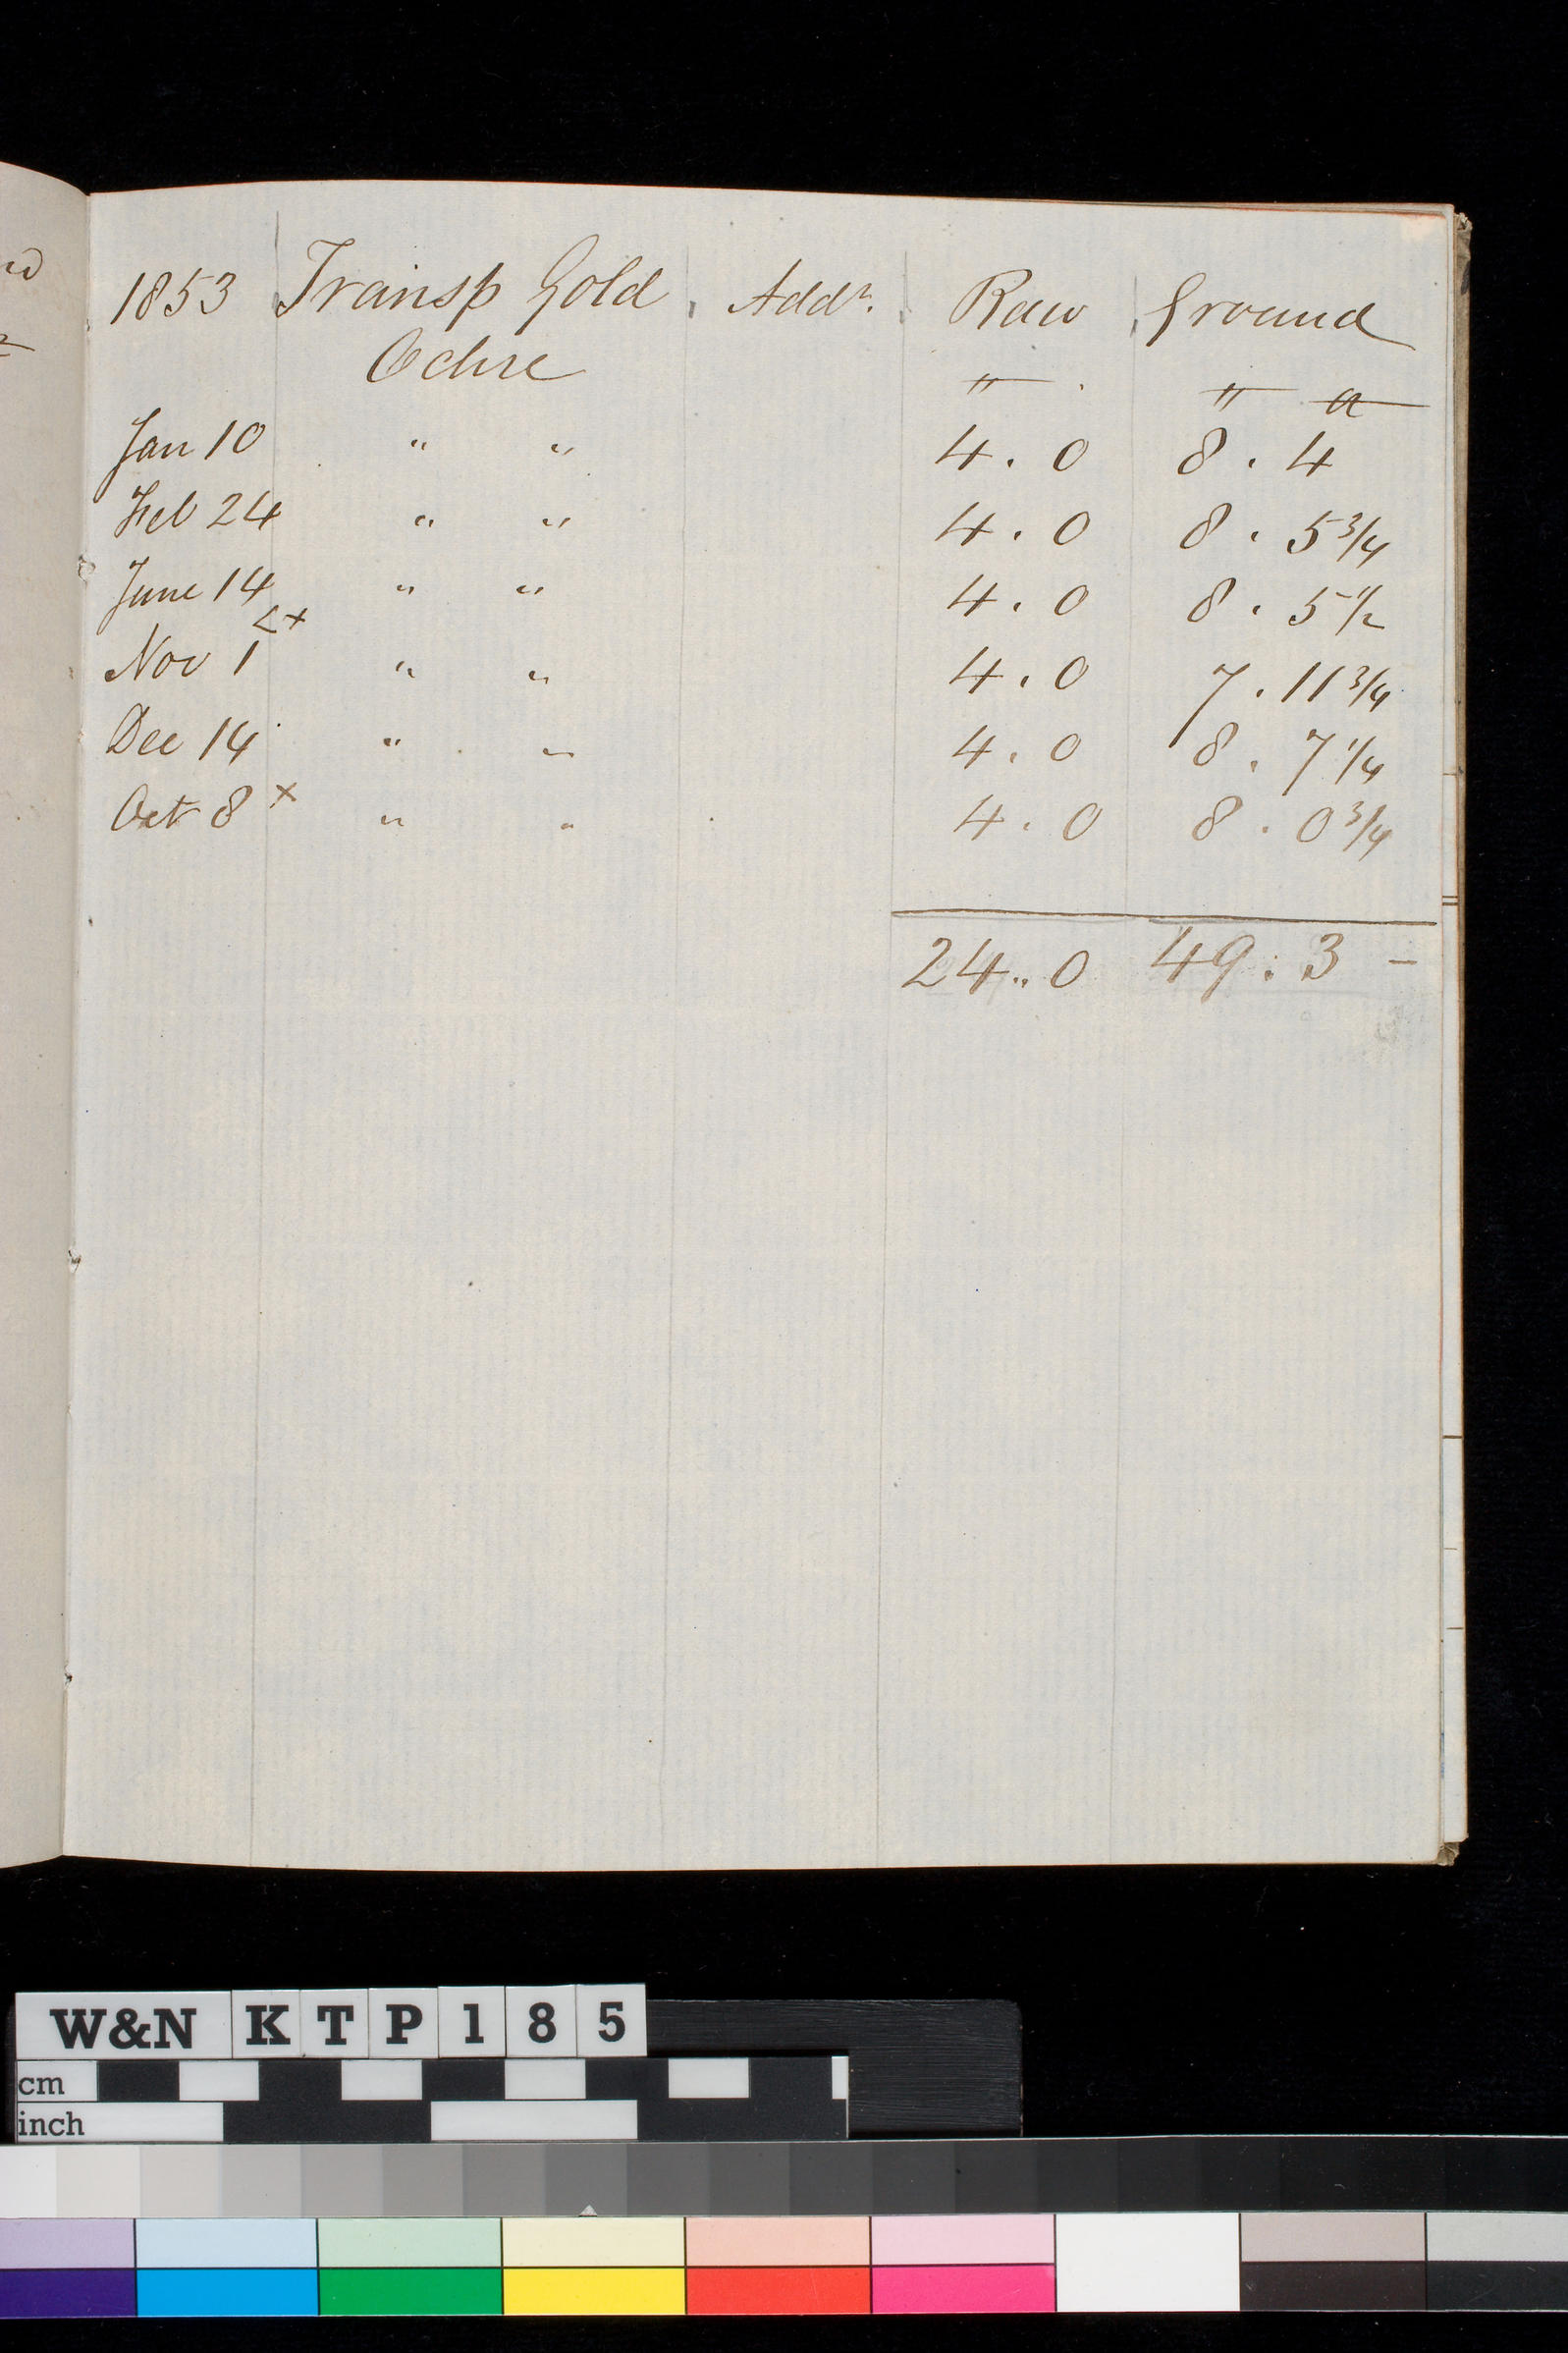 1853 Transp Gold Addn. Raw Ground
Ochre
" " a
Jan 10 " " 4 . 0 8 . 4
Feb 24 " " 4 . 0 8 . 5 3/4
June 14 " " 4 . 0 8 . 5 1/2
Nov 1 <+ " " 4 . 0 7 . 11 3/4
Dec 14 " " 4 . 0 8 . 7 1/4
Oct 8 x " " 4 . 0 8 . 0 3/4
24 .. 0 49 : 3 -
W&N KTP185
cm
inch